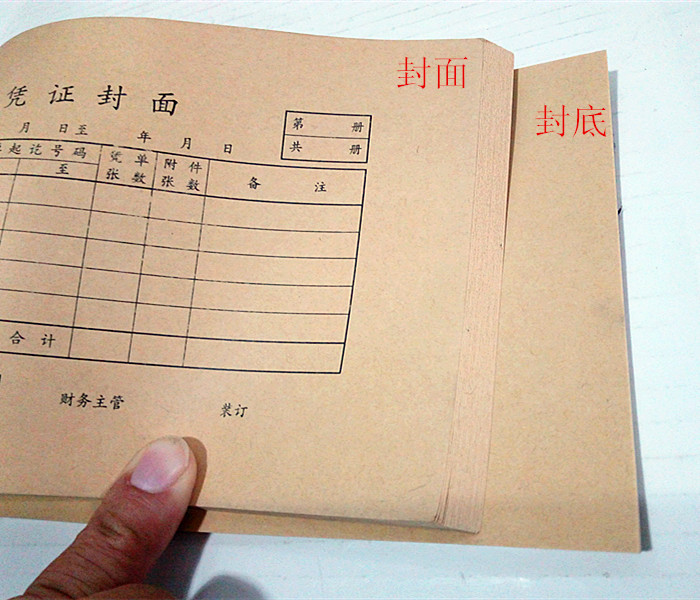 封面
封底
凭证封面
月 日至 年 月 日
第 册
共 册
起讫号码 凭单张数 附件张数 备 注
至
合 计
财务主管 装订